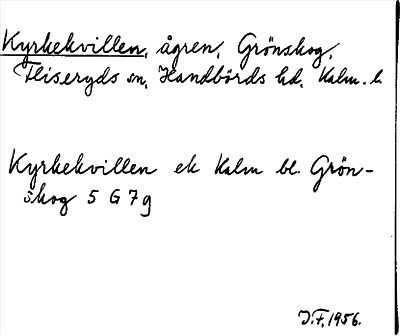 Kyrkekvillen, ågren, Grönskog,
Fliseryds sn, Handbörds hd, Kalm. l.
Kyrkekvillen ek Kalm bl. Grön-
skog 5 G 7 g
J.F, 1956.